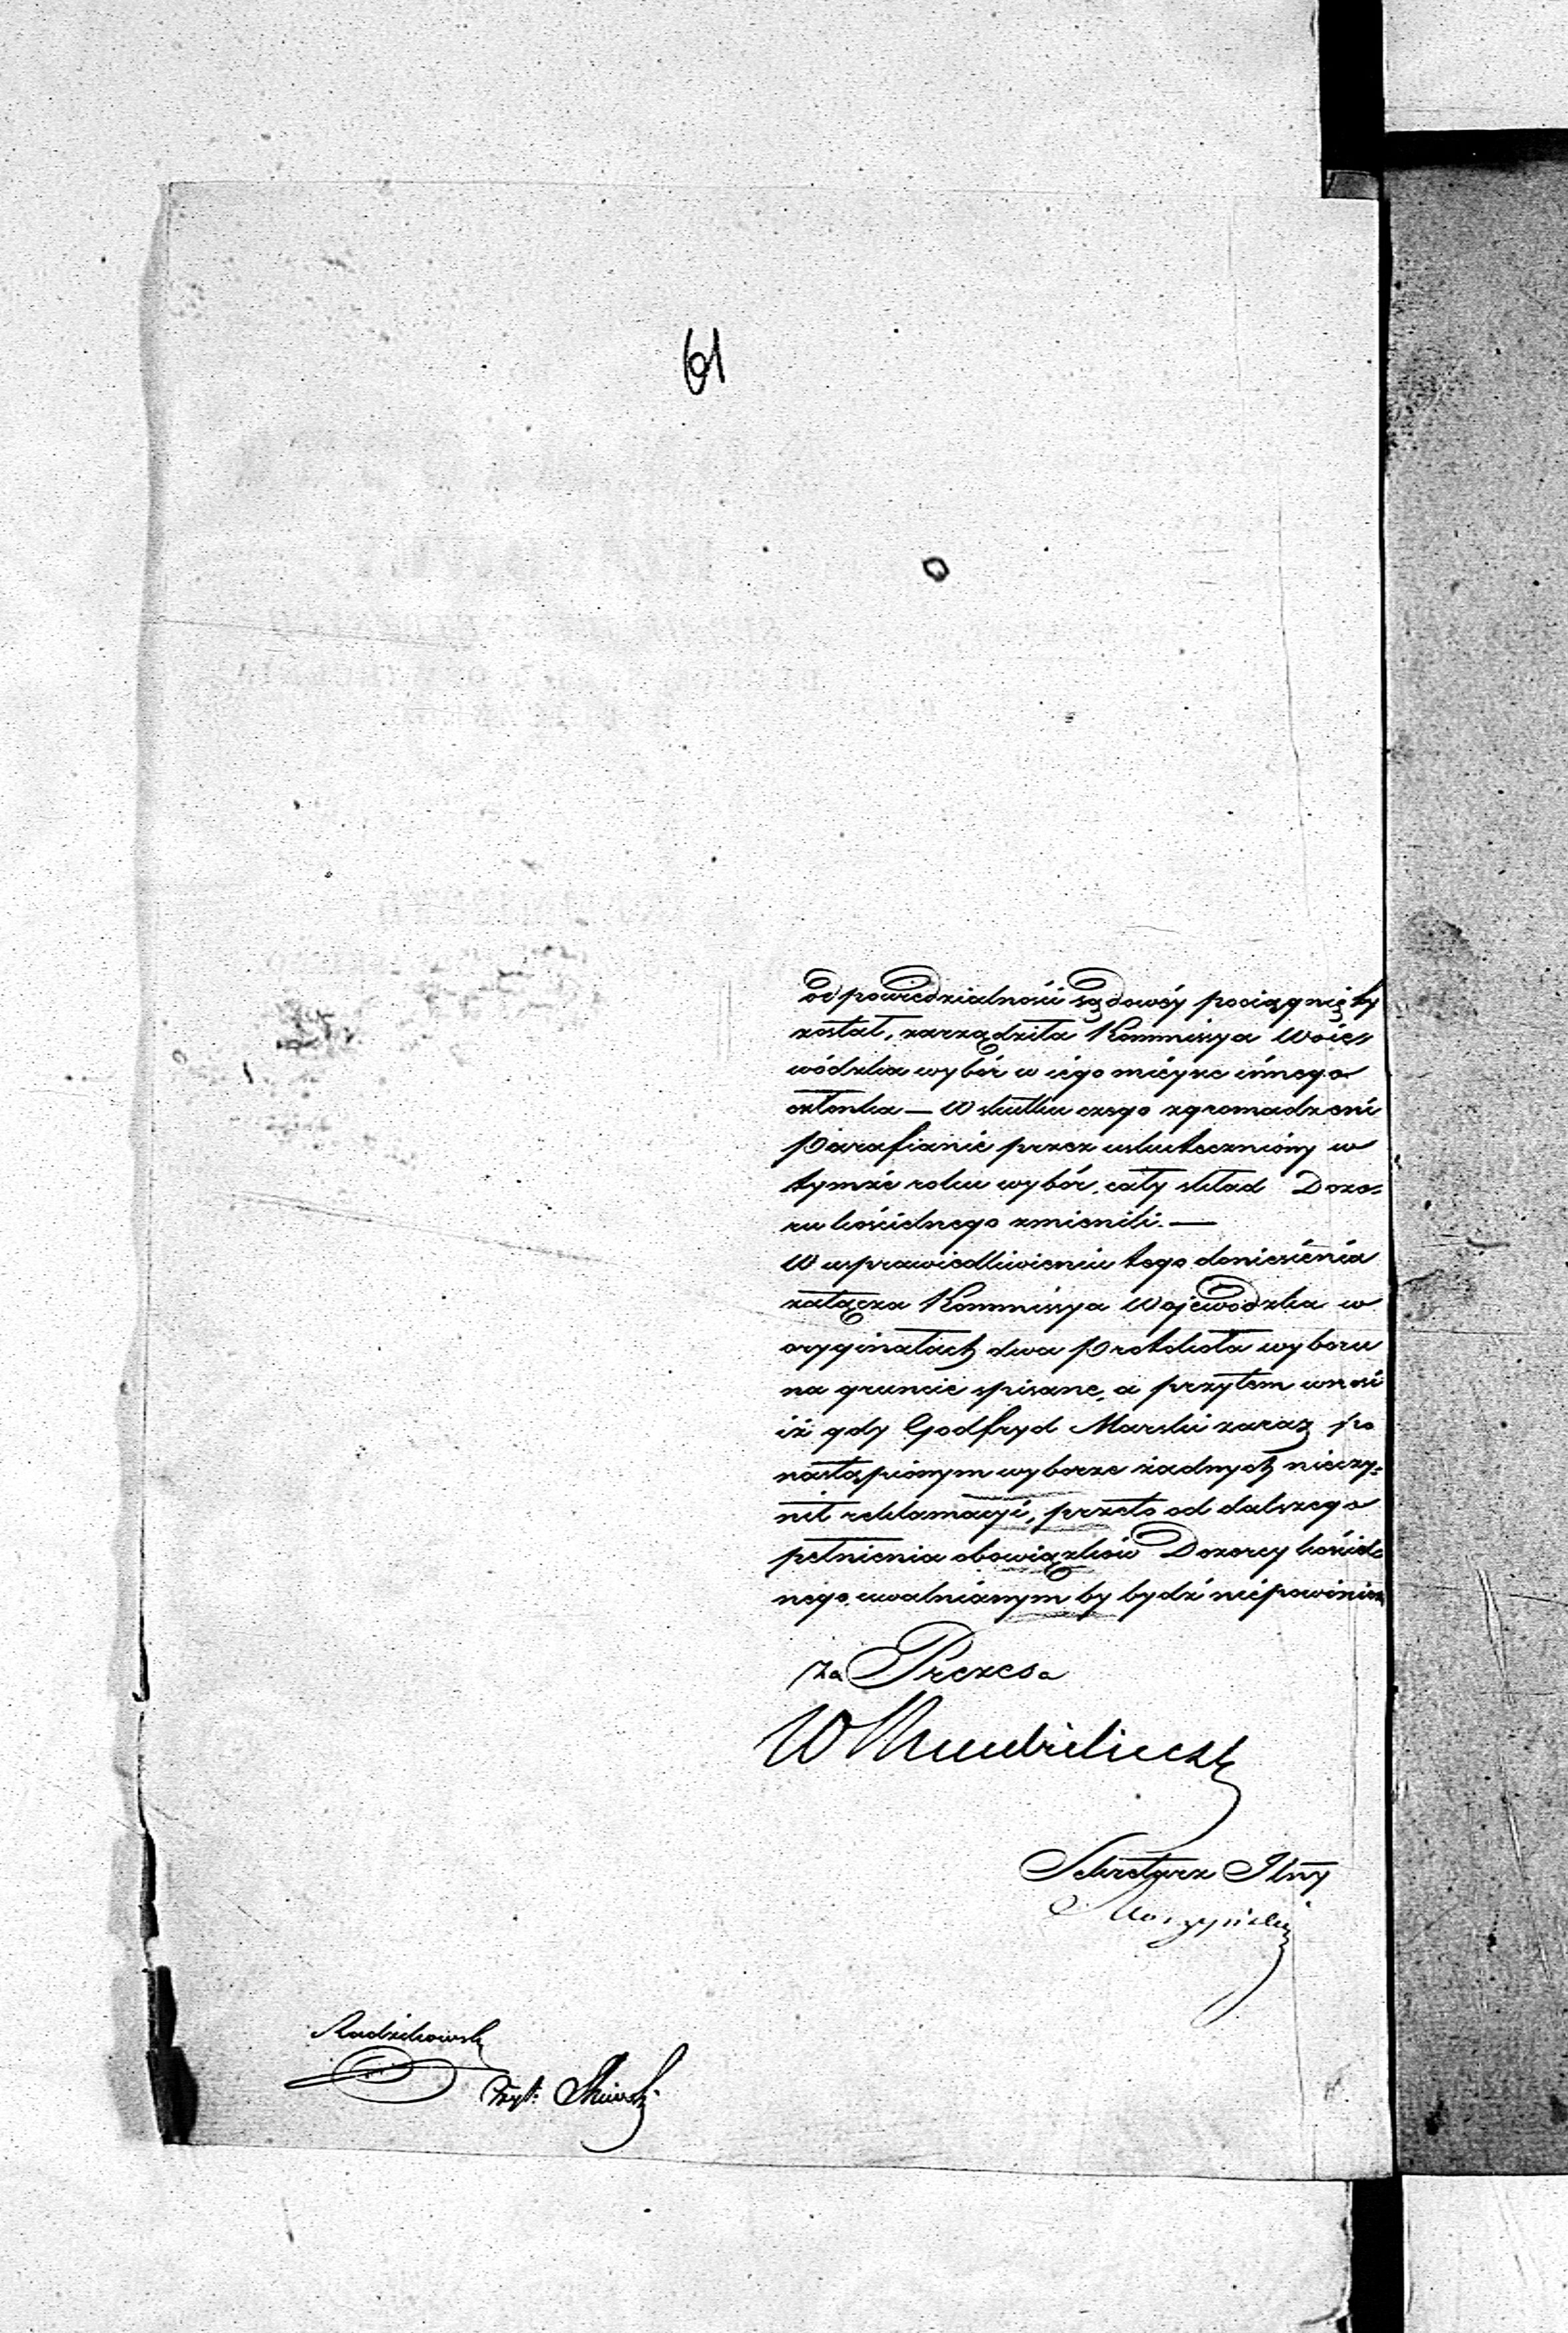 61
odpowiedzialności sądowéy pociągnięty
został, zarządziła Kommissya Woie-
wódzka wybór w iégo miéysce innego
członka — W skutku czego zgromadzeni
Parafianie przez uskuteczniony w
tymże roku wybór, cały skład Dozo-
ru kościelnego zmienili. —
W usprawiedliwieniu tego doniesienia
załącza Kommissya Wojewódzka w
oryginałach dwa Protokoła wyboru
na gruncie spisane, a przytem wnosi
iż gdy Godfryd Marski zaraz po
nastąpionym wyborze żadnych nieczy-
nił reklamacyi, przeto od dalszego
pełnienia obowiązków Dozorcy kościel-
nego, uwalnianym by bydź niepowinien
Za Prezesa
Sekretarz Jlny
Radzikowski